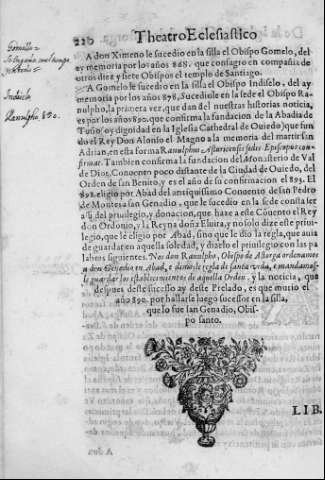 220 Theatro Eclesiastico
A don Ximeno le sucedio en la silla el Obispo Gomelo, del
ay memoria por los años 868. que consagro en compañia de
otros diez y siete Obispos el templo de Santiago.
A Gomelo le sucedio en la silla el Obispo Indiselo, del ay
memoria por los años 878, sucediole en la sede el Obispo Ra-
nulpho, la primera vez, que dan del nuestras historias noticia,
es por los años 890. que confirma la fundacion de la Abadia de
Tuñõ (oy dignidad en la Iglesia Cathedral de Ouiedo) que fun
do el Rey Don Alonso el Magno a la memoria del martir san
Adrian, en esta forma Ranulphus Astoricensis sedis Episcopus con-
firmat. Tambien confirma la fundacion del Monasterio de Val
de Dios, Conuento poco distante de la Ciudad de Ouiedo, del
Orden de san Benito, y es el año de su confirmacion el 893. El
898. eligio por Abad del antiquissimo Conuento de san Pedro
de Montes a san Genadio, que le sucedio en la sede consta ser
assi del priuilegio, y donacion, que haze a este Cõuento el Rey
don Ordonio, y la Reyna doña Eluira, y no solo dize este priui-
legio, que le eligio por Abad, sino que le dio la regla, que auia
de guardar en aquella soledad, y dizelo el priuilegio con las pa
labras siguientes. Nos don Ranulpho, Obispo de Astorga ordenamos
a don Genadio en Abad, e dimosle regla de santa vida, e mandamos-
le guardar los establecimientos de aquella Orden. y la noticia, que
despues deste sucesso ay deste Prelado, es que murio el
año 899. por hallarse luego sucessor en la silla,
que lo fue san Genadio, Obis-
po santo.
LIB.
Gomello
Indisclo
Ranulpho, 890.